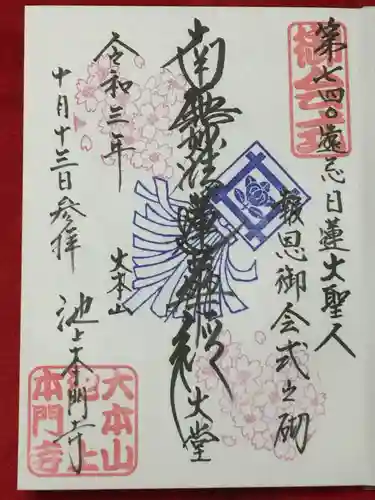 第七四〇遠忌日蓮大聖人
報恩御会式之砌
御会式
南無妙法蓮華経
大堂
大本山
池上本門寺
令和三年
十月十三日参拝
大本山
池上
本門寺